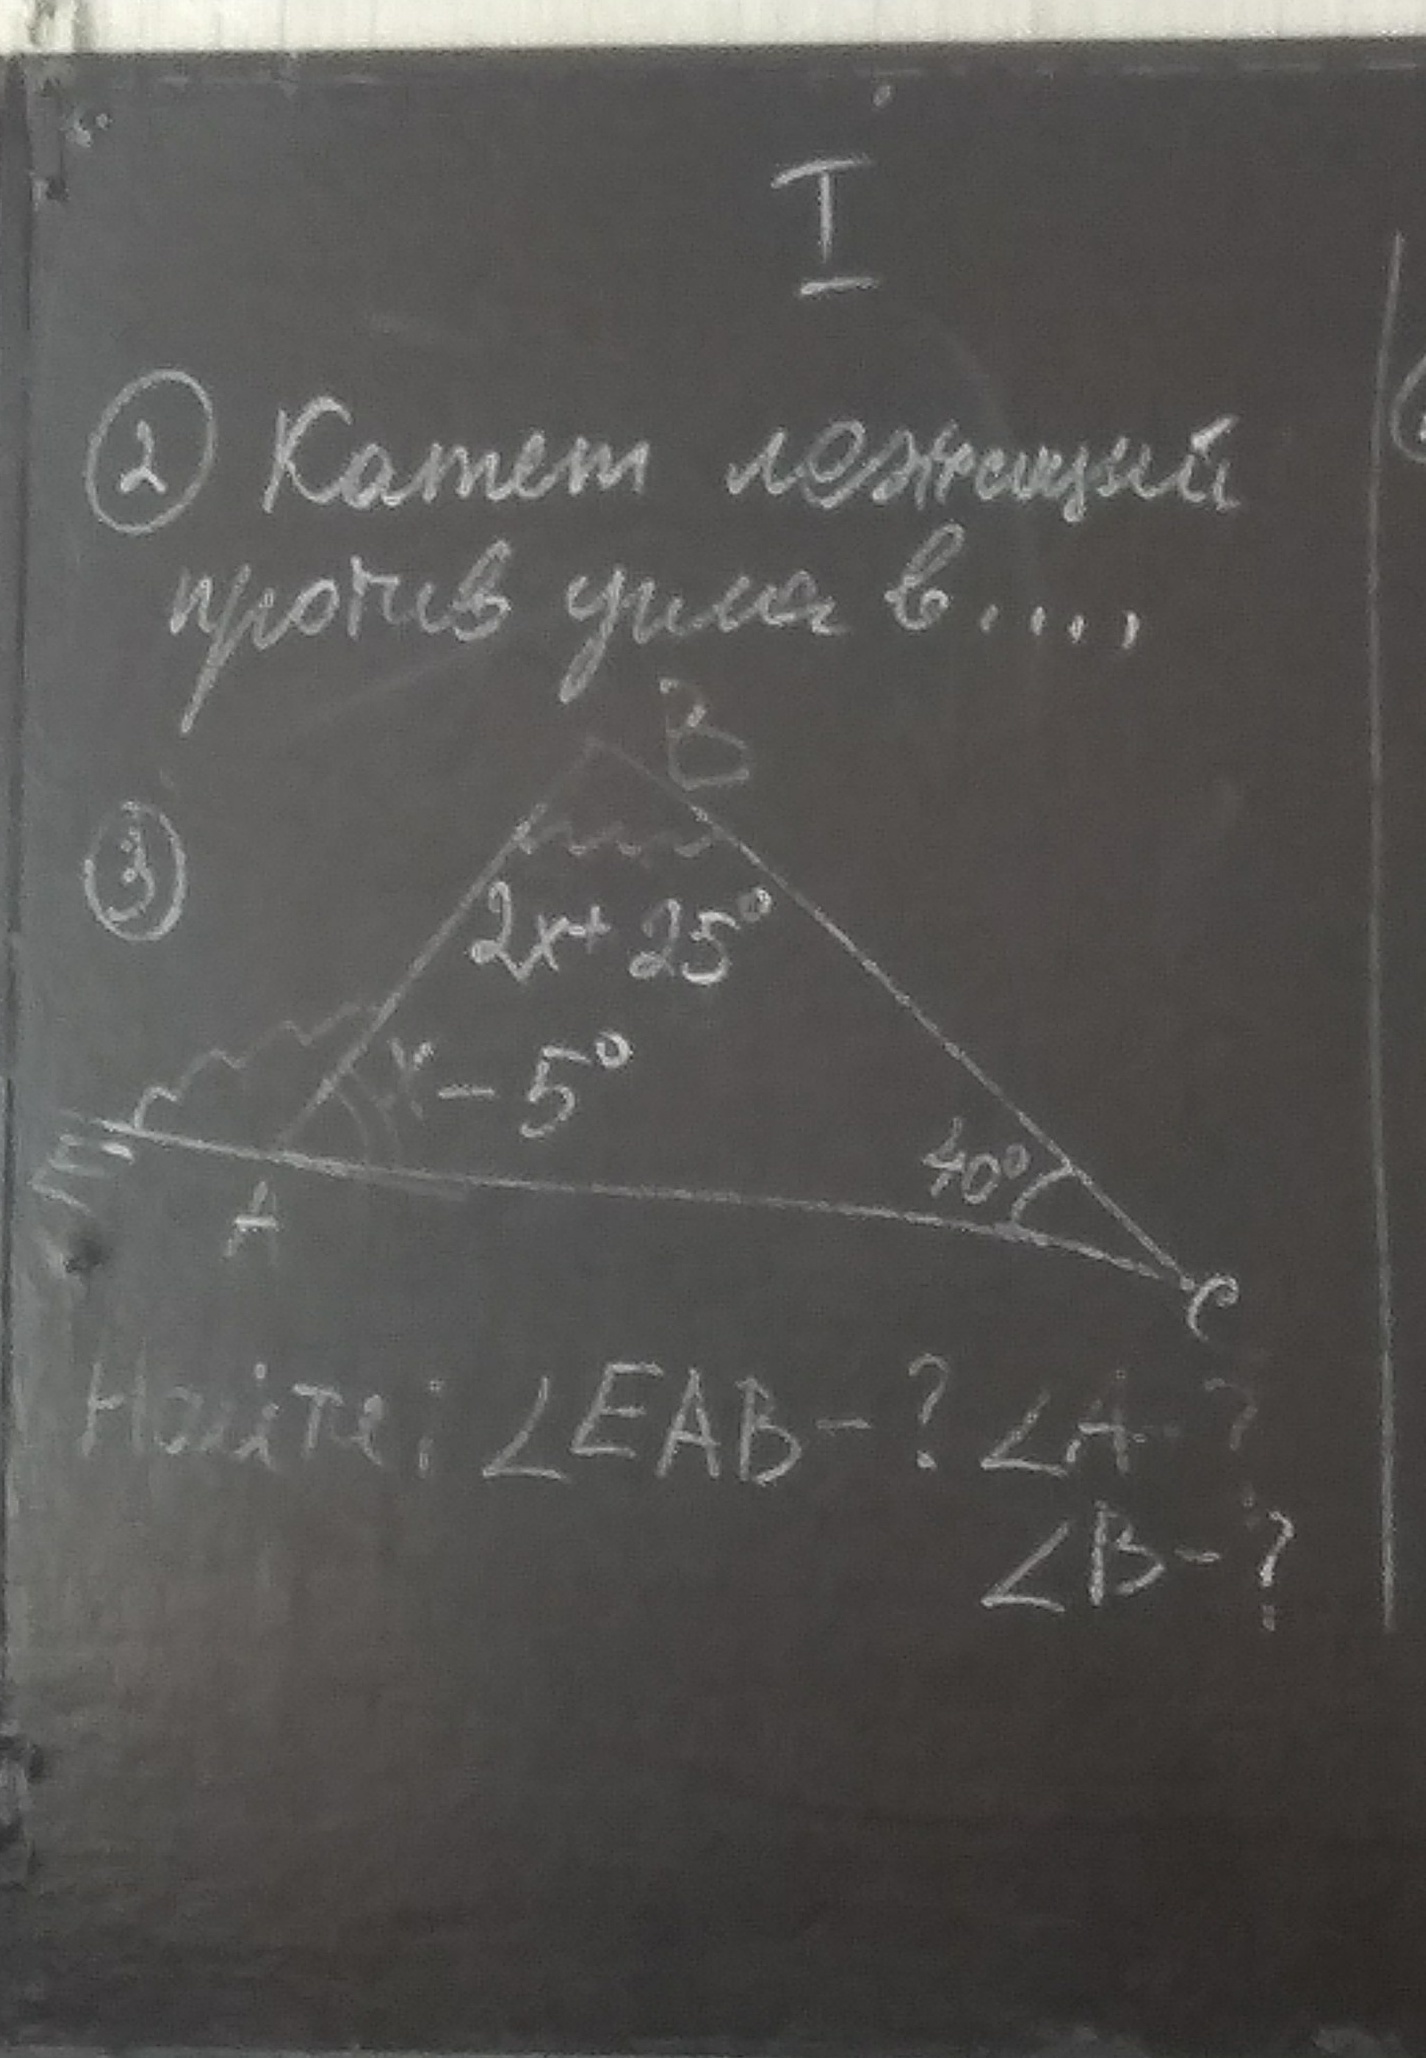 I
② Катет лежащий
против угла в....
B
③
2x+25°
x-5°
40°
E
A
C
Найти: ∠EAB-? ∠A-?
∠B-?